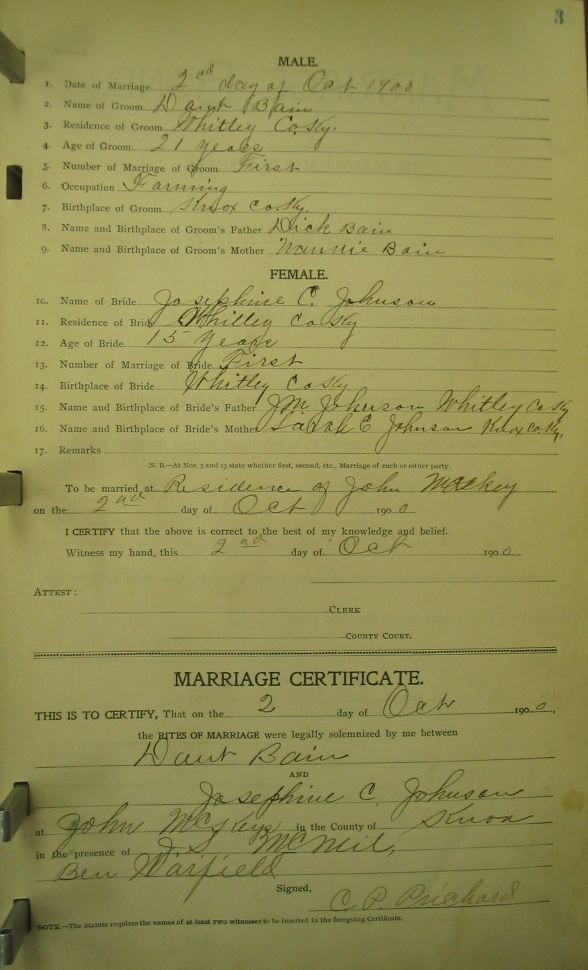 3
MALE.
1. Date of Marriage 2nd day of Oct 1900
2. Name of Groom Daut Bain
3. Residence of Groom Whitley Co. Ky.
4. Age of Groom 21 years
5. Number of Marriage of Groom First
6. Occupation Farming
7. Birthplace of Groom Knox Co. Ky.
8. Name and Birthplace of Groom's Father Dick Bain
9. Name and Birthplace of Groom's Mother Nannie Bain
FEMALE.
10. Name of Bride Josephine C. Johnson
11. Residence of Bride Whitley Co Ky
12. Age of Bride 15 Years
13. Number of Marriage of Bride First
14. Birthplace of Bride Whitley Co Ky
15. Name and Birthplace of Bride's Father J M Johnson Whitley Co Ky
16. Name and Birthplace of Bride's Mother Sarah E Johnson Knox Co. Ky.
17. Remarks
N. B.—At Nos. 5 and 13 state whether first, second, etc., Marriage of each or either party.
To be married at Residence of John McKey
on the 2nd day of Oct 1900
I CERTIFY that the above is correct to the best of my knowledge and belief.
Witness my hand, this 2nd day of Oct 1900.
ATTEST:
CLERK
COUNTY COURT.
MARRIAGE CERTIFICATE.
THIS IS TO CERTIFY, That on the 2 day of Oct 1900.
the RITES OF MARRIAGE were legally solemnized by me between
Daut Bain
AND
Josephine C. Johnson
at John McKeys in the County of Knox
in the presence of McNeil,
Ben Warfield
Signed, C. P. Prichard
NOTE.—The Statute requires the names of at least two witnesses to be inserted in the foregoing Certificate.